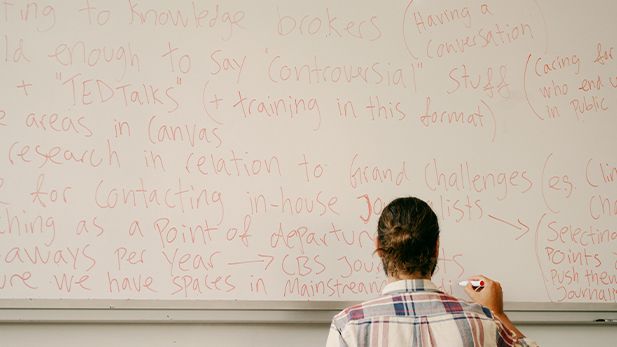 ting to knowledge brokers (Having a conversation)
ld enough to say 'controversial' stuff (Caring for
+ "TEDTalks" (+ training in this format) who end u
in Public
e areas in Canvas
research in relation to Grand Challenges (eg. Clin
e for Contacting in-house Jo lists → Cha
ching as a Point of departur (Selecting
aways per year → CBS Jou ts Points o
ure we have spaces in Mainstream Push them
Journali